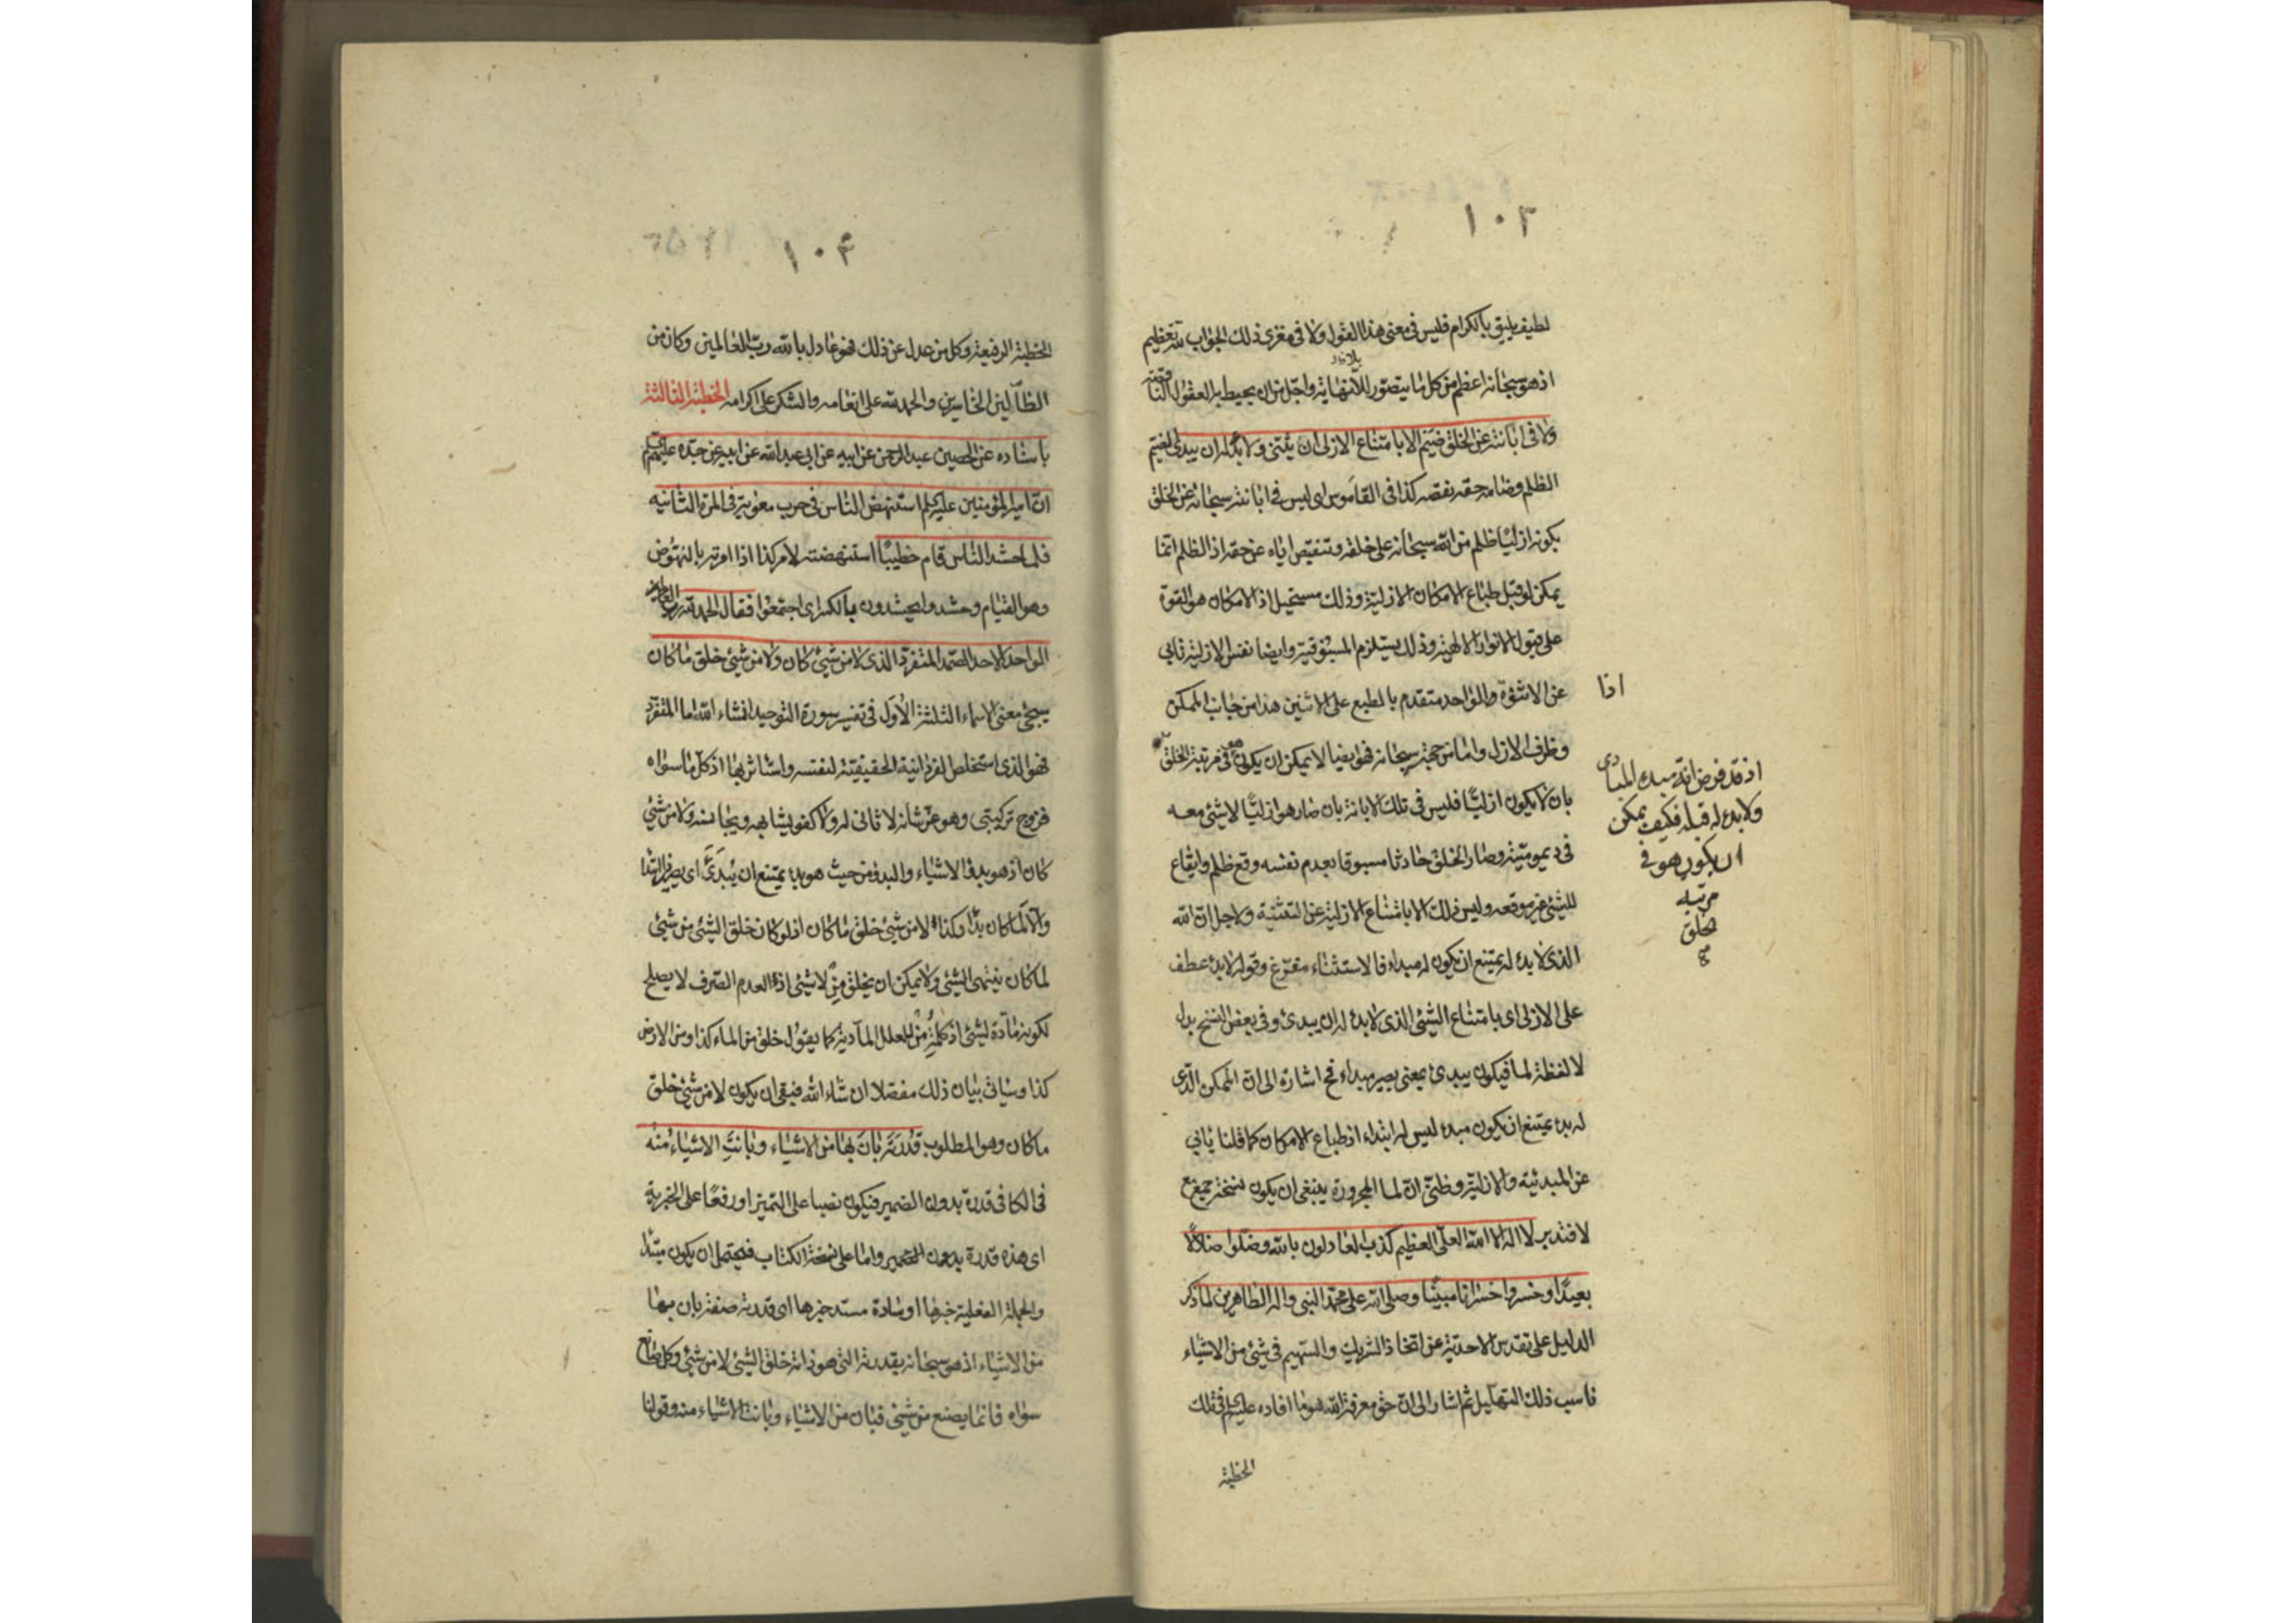 ١٠٣
لطيف يليق بالكرام فليس في معنى هذا القول ولا في مغزى ذلك الجواب لله تعظيم
اذ هو سبحانه اعظم من كل ما يتصور اللانهاية واجل من ان يحيط به العقول
ولا في ابانته عن الخلق ضيم الا بامتناع الازلي ان يثنى ولا بدء له ان يبدئ الضيم
الظلم وضامه حقه نقصه كذا في القاموس اي ليس في ابانته سبحانه عن الخلق
بكونه ازليا ظلم من الله سبحانه على خلقه وتنقيص اياه عن حقه اذ الظلم انما
يمكن لو قبل طباع الامكان الازلية وذلك مستحيل اذ الامكان هو القوة
على قبول الانوار الالهية وذلك يستلزم المسبوقية وايضا نفس الازلية تابى
عن الاثنوة والواحد متقدم بالطبع على الاثنين هذا من جانب الممكن
اذا
وظرف الازل واما من جهته سبحانه فهو ايضا لا يمكن ان يكون هو في مرتبة الخلق
بان لا يكون ازليا فليس في تلك الابانة بان صار هو ازليا لا شئ معه
في ديموميته وصار الخلق حادثا مسبوقا بعدم نفسه وقع ظلم وايقاع
للشئ غير موقعه وليس ذلك الا بامتناع الازلية عن التثنية ولاجل ان الله
الذي لا بدء له يمتنع ان يكون له مبداء فالاستثناء مفرغ وقوله لا بدء عطف
على الازلي اي بامتناع الشئ الذي لا بدء له ان يبدئ وفي بعض النسخ بدل
لا لفظة لما فيكون يبدئ بمعنى يصير مبداء فح اشارة الى ان الممكن الذي
له بدء يمتنع ان يكون مبدء ليس له ابتداء اذ طباع الامكان كما قلنا يابى
عن المبدئية والازلية وظني ان لما المجرورة ينبغي ان يكون نسخة جمع مع
لا فتدبر لا اله الا الله العلي العظيم كذب العادلون بالله وضلوا ضلالا
بعيدا وخسروا خسرانا مبينا وصلى الله على محمد النبي واله الطاهرين لما ذكر
الدليل على تقدس الاحدية عن اتخاذ الشريك والسهيم في شئ من الاشياء
ناسب ذلك التهليل ثم اشار الى ان حق معرفة الله هو ما افاده عليه السلم في تلك
الخطبة
اذ قد فرض انه مبدء المبادى
ولا بدء له قبله فكيف يمكن
ان يكون هو في
مرتبة
الخلق
١٠٤
الخطبة الرفيعة وكل من عدل عن ذلك فهو عادل بالله رب العالمين وكان من
الظالين الخاسرين والحمد لله على انعامه والشكر على اكرامه الخطبة الثالثة
باسناده عن الحصين عبد الرحمن عن ابيه عن ابي عبد الله عن ابيه عن جده عليهم
ان امير المؤمنين عليه السلم استنهض الناس في حرب معوية في المرة الثانيه
فلما حشد الناس قام خطيبا استنهضته لامر كذا اذا امرته بالنهوض
وهو القيام وحشدوا يحشدون بالكسر اي اجتمعوا فقال الحمد لله
الواحد الاحد الصمد المتفرد الذي لا من شئ كان ولا من شئ خلق ما كان
سيجئ معنى الاسماء الثلثة الاول في تفسير سورة التوحيد انشاء الله اما المتفرد
فهو الذي استخلص الفردانية الحقيقية لنفسه واستاثر بها اذ كل ما سواه
فزوج تركيبي وهو عز شانه لا ثاني له ولا كفو يشابهه ويجانسه ولا من شئ
كان اذ هو بدء الاشياء والبدء من حيث هو بدء يمتنع ان يبدئ اي يصير له ابتدا
والا لما كان بدأ وكذا لا من شئ خلق ما كان اذ لو كان خلق الشئ من شئ
لما كان ينتهى الشئ ولا يمكن ان يخلق من لا شئ اذ العدم الصرف لا يصلح
لكونه مادة لشئ اذ كلمة من للعلل المادية كما يقول خلق من الماء كذا ومن الارض
كذا وسياتي بيان ذلك مفصلا ان شاء الله فبقى ان يكون لا من شئ خلق
ما كان وهو المطلوب قدرته بان بها من الاشياء وبانت الاشياء منه
في الكافي قدرة بدون الضمير فيكون نصبا على التميز او رفعا على الخبرية
اي هذه قدرة بدون الضمير واما على نسخة الكتاب فيحتمل ان يكون مبتدا
والجملة الفعلية خبرها او سادة مسد خبرها اي قدرته صفة بان بها
من الاشياء اذ هو سبحانه بقدرته التي هو ذاته خلق الشئ لا من شئ وكل صانع
سواه فانما يصنع من شئ فبان من الاشياء وبانت الاشياء منه وقولنا